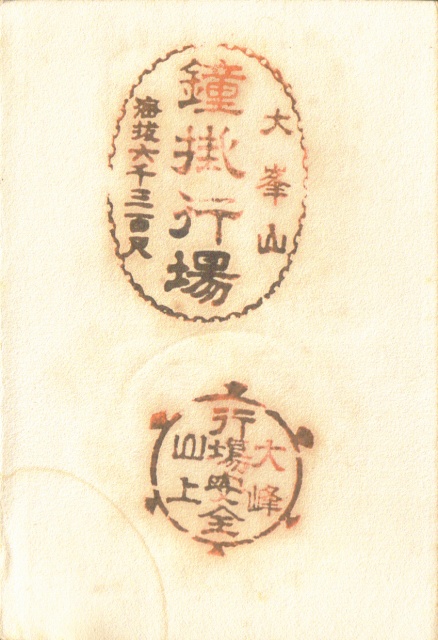 大峯山
鐘掛行場
海抜六千三百尺
大峰
行場安全
山上